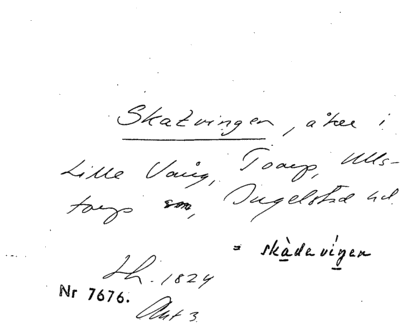 Skatvingen, åker i
Lille Vång, Toarp, Ulls-
torp sn, Ingelstad hd.
= skàdevíŋen
Sh. 1824
Nr 7676.
Akt 3.